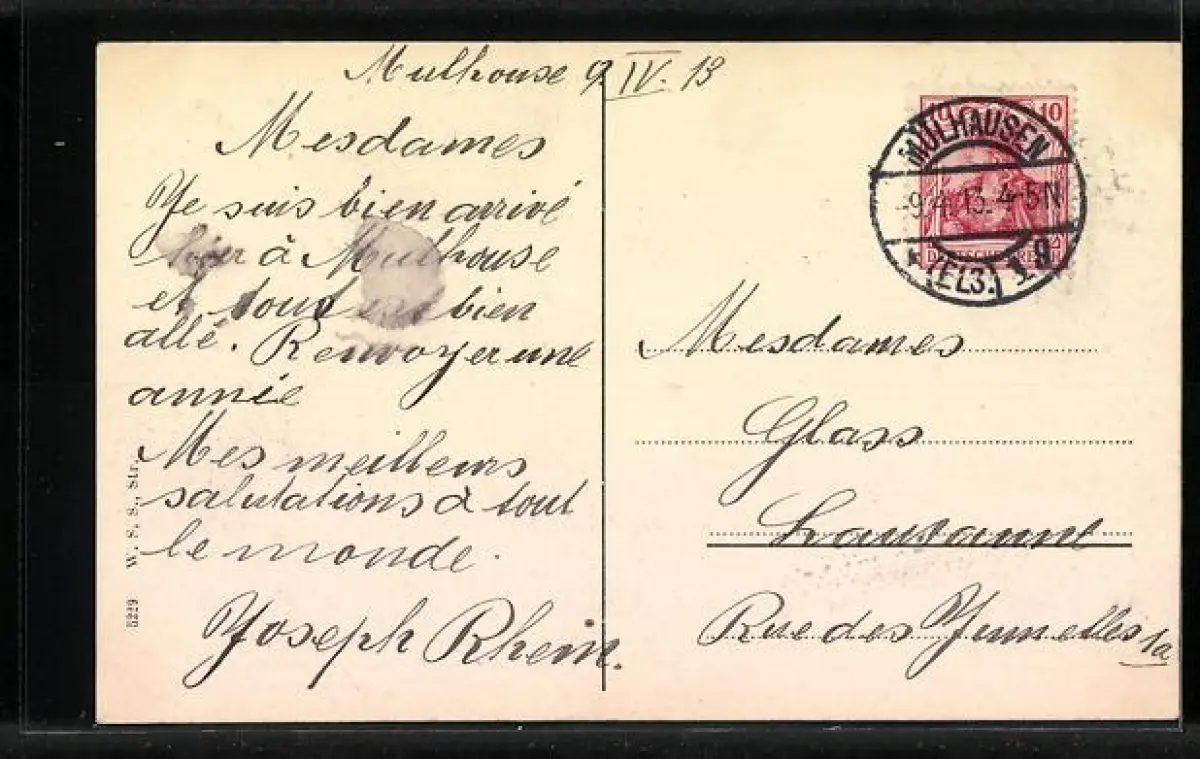 Mulhouse 9 IV. 13
Mesdames
Je suis bien arrivé
hier à Mulhouse
et tout est bien
allé. Renvoyer une
année
Mes meilleurs
salutations à tout
le monde.
Joseph Rhein.
5229 W. S. S., Str.
10 10
MÜLHAUSEN
-9.4.13.4-5N
(ELS.)
DEUTSCHES REICH
Mesdames
Glass
Lausanne
Rue des Jumelles 1a